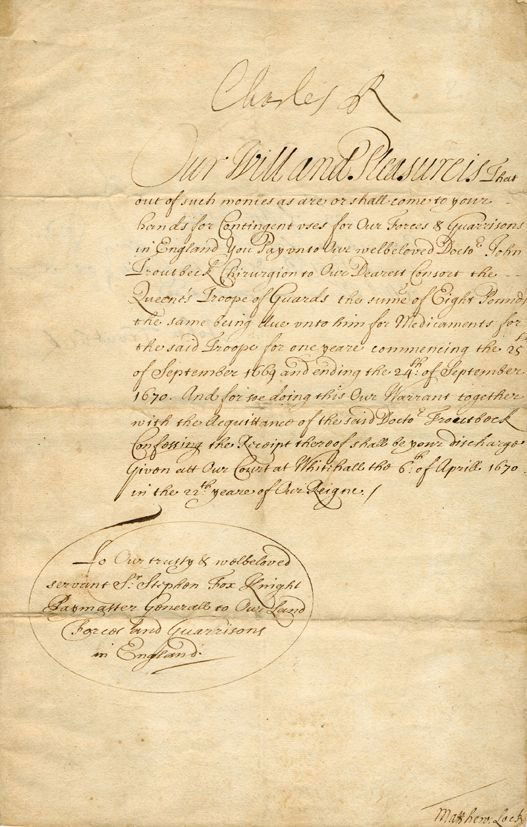 Charles R
Our Will and Pleasure is That
out of such monies as are or shall come to your
hands for Contingent vses for Our Forces & Guarrisons
in England You Pay vnto Our welbeloved Docto.r John
Troutbeck Chirurgion to Our Dearest Consort the
Queene's Troope of Guards the sum̃e of Eight Pounds
the same being due vnto him for Medicaments for
the said Troope for one yeare commencing the 25th
of September 1669 and ending the 24th. of September
1670. And for soe doing this Our Warrant together
with the Acquittance of the said Docto.r Troutbeck
Confessing the Receipt thereof shall be your discharge
Given att Our Court at Whitehall the 6th. of Aprill 1670
in the 22th yeare of Our Reigne /
To Our trusty & welbeloved
servant Sr. Stephen Fox Knight
Paymaster Generall to Our Land
Forces and Guarrisons
in England.
Matthew Lock